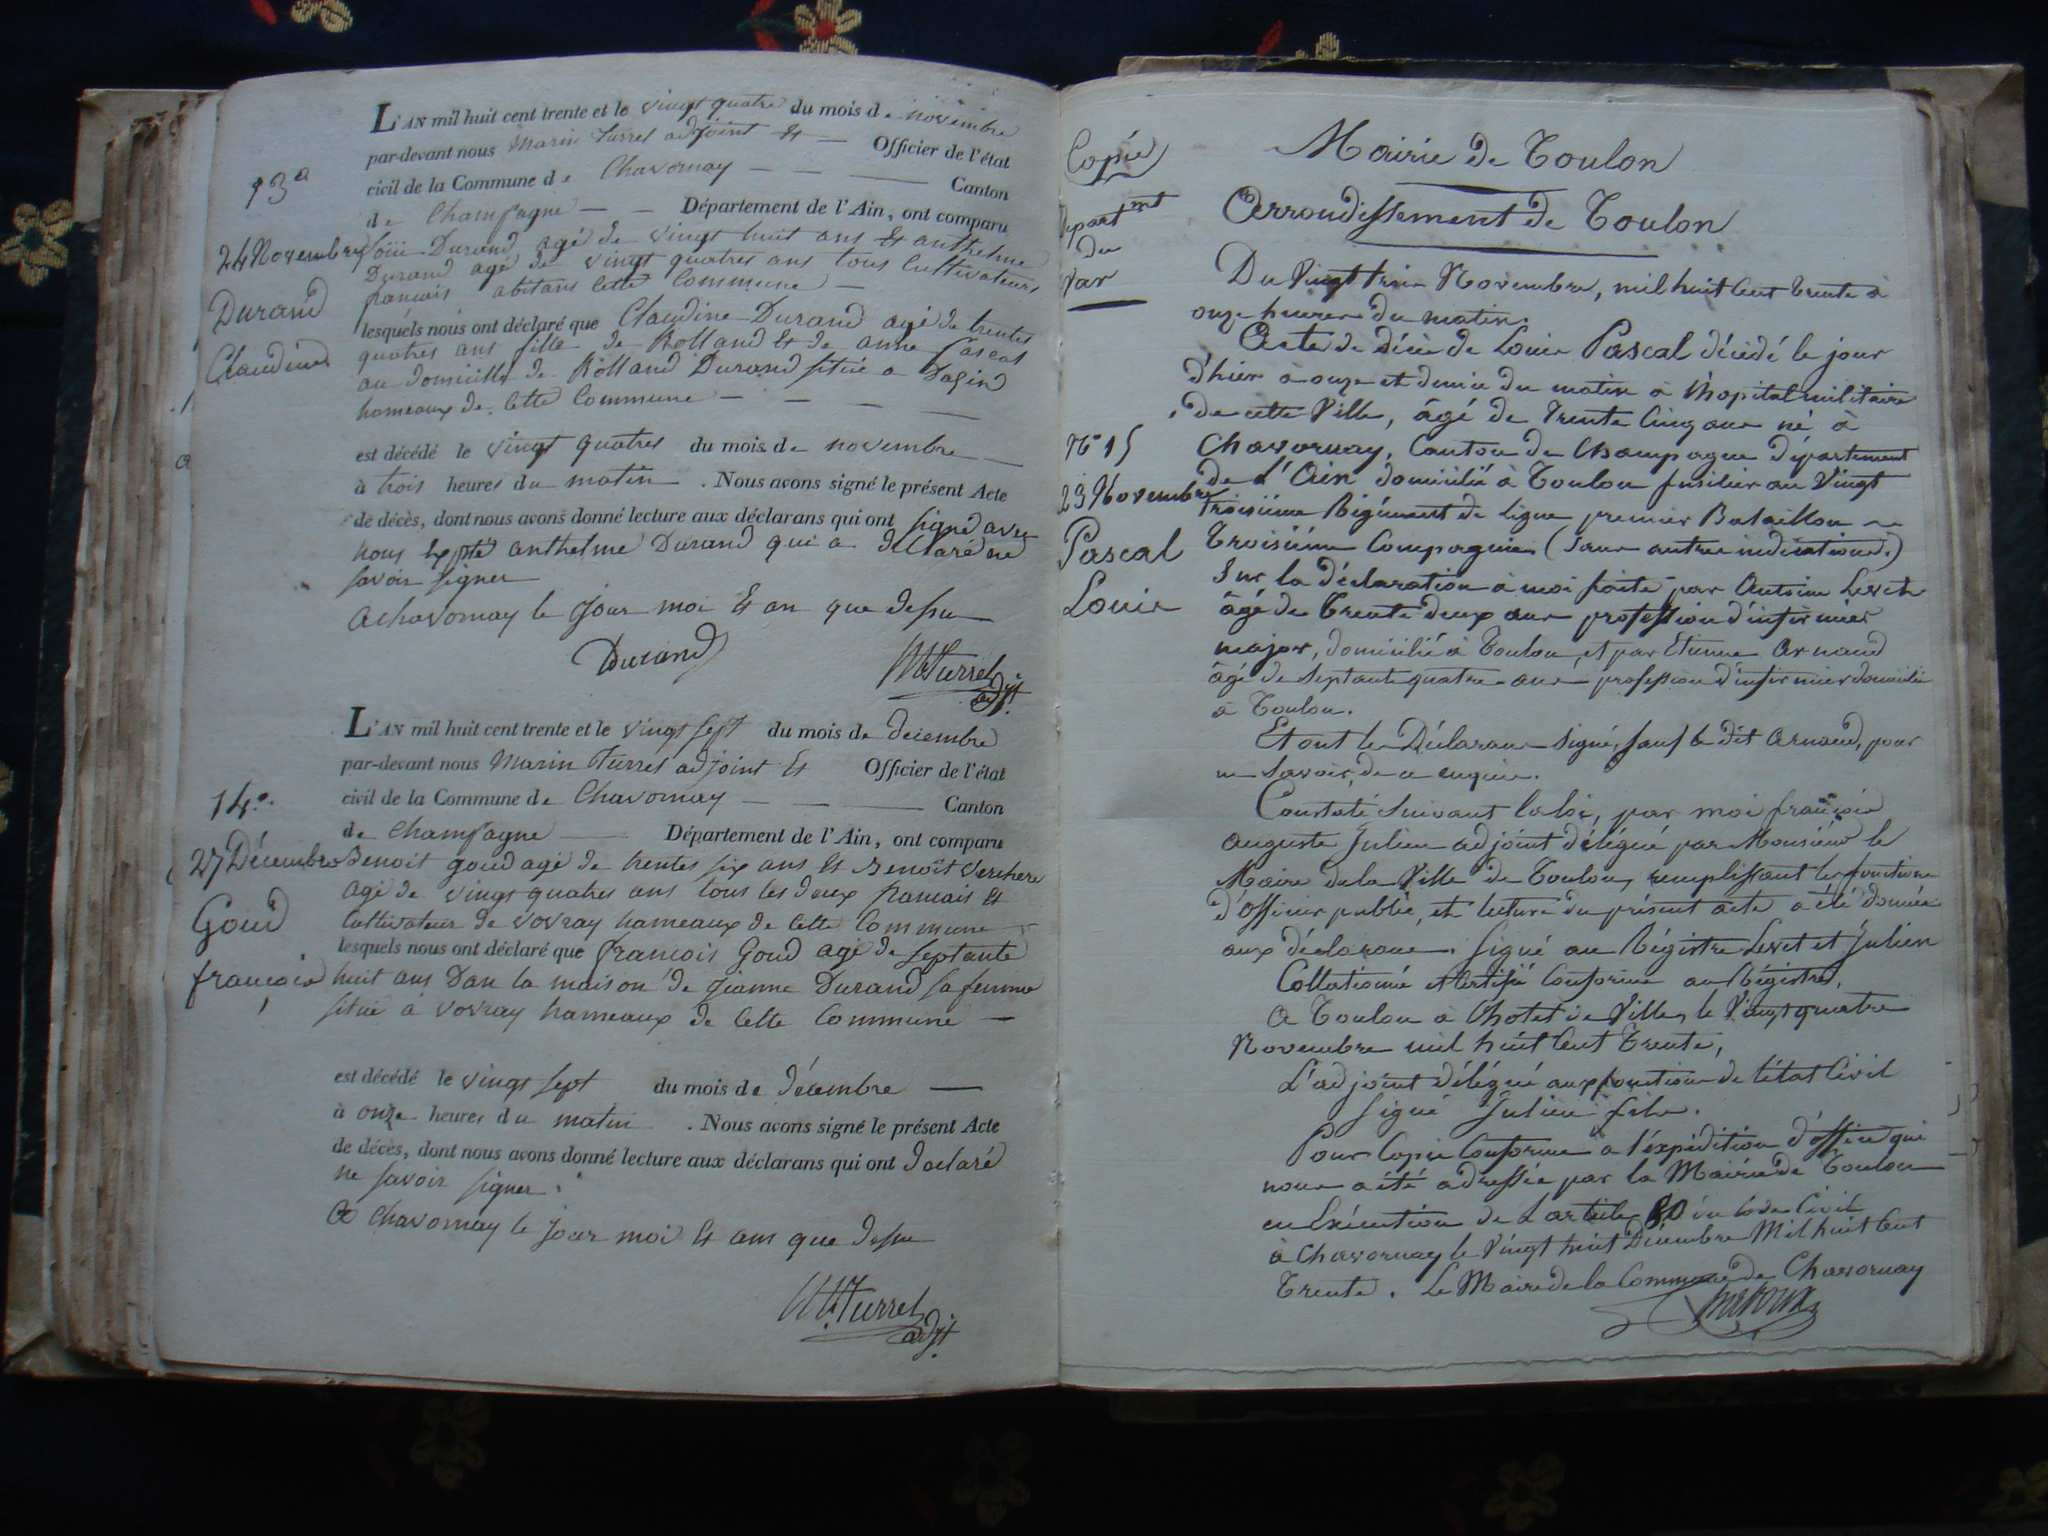 L'AN mil huit cent trente et le vingt quatre du mois de novembre
par-devant nous Marin Turrel adjoint et — Officier de l'état
civil de la Commune de Chavornay — — — Canton
de Champagne — — Département de l'Ain, ont comparu
Durand agé de vingt huit ans et anthelme
Durand agé de vingt quatres ans tous cultivateurs
francais abitans cette Commune —
lesquels nous ont déclaré que Claudine Durand agé de trentes
quatres ans fille de Rolland et de anne Pascal
au domicille de Rolland Durand situé a
hameaux de cette Commune — — — —
est décédé le vingt quatres du mois de novembre —
à trois heures du matin . Nous avons signé le présent Acte
de décès, dont nous avons donné lecture aux déclarans qui ont signé avec
nous exptė anthelme Durand qui a déclaré ne
savoir signer
A chavornay le jour moi et an que dessu
Durand
M Turrel
adjt.
13e
24 Novembre
Durand
Claudine
L'AN mil huit cent trente et le vingt sept du mois de decembre
par-devant nous Marin Turrel adjoint et Officier de l'état
civil de la Commune de Chavornay — — — Canton
de Champagne — Département de l'Ain, ont comparu
Benoit goud agé de trentes six ans et Benoît Verchere
agé de vingt quatres ans tous les deux francais et
Cultivateur de vovray hameaux de cette Commune
lesquels nous ont déclaré que francois Goud agé de septante
huit ans Dan la maison de jeanne Durand sa femme
situé à vovray hameaux de cette Commune —
est décédé le vingt sept du mois de décembre —
à onze heures du matin . Nous avons signé le présent Acte
de décès, dont nous avons donné lecture aux déclarans qui ont déclaré
ne savoir signer.
A chavornay le jour moi et ans que dessu
M Turrel
adjt.
14e.
27 Décembre
Goud
françois
Copie
Départmt
du
Var
Mairie de Toulon
Arrondissement de Toulon
Du Vingt trois Novembre, mil huit Cent trente à
onze heures du matin.
Acte de décès de Louis Pascal décédé le jour
d'hier à onze et demie du matin à l'hopital militaire
de cette Ville, âgé de Trente Cinq ans né à
Chavornay, Canton de Champagne département
de L'Ain domicilié à Toulon fusilier au Vingt
troisième Régiment de ligne premier Bataillon
Troisième Compagnie (sans autres indications.)
Sur la déclaration à moi faite par Antoine Levet
âgé de Trente deux ans profession d'infirmier
major, domicilié à Toulon, et par Etienne Arnaud
âgé de septante quatre ans profession d'infirmier domicilié
à Toulon.
Et ont les Déclarans signé, sauf le dit Arnaud, pour
ne savoir, de ce enquis.
Constaté suivant la loi, par moi françois
auguste Julien adjoint délégué par Monsieur le
Maire de la Ville de Toulon, remplissant les fonctions
d'officier public, et lecture du présent acte a été donnée
aux déclarans. Signé au Régistre Levet et Julien
Collationné et Certifié Conforme au Régistre,
A Toulon à l'hotel de Ville, le Vingt quatre
Novembre mil huit Cent Trente,
L'adjoint délégué aux fonctions de l'état Civil
Signé Julien fils.
Pour Copie Conforme a l'expédition d'office qui
nous a été adressée par la Mairie de Toulon
en Exécution de L'article 80 du Code Civil
à Chavornay le Vingt huit Décembre Mil huit Cent
Trente. Le Maire de la Commune de Chavornay
No 15
23 Novembre
Pascal
Louis